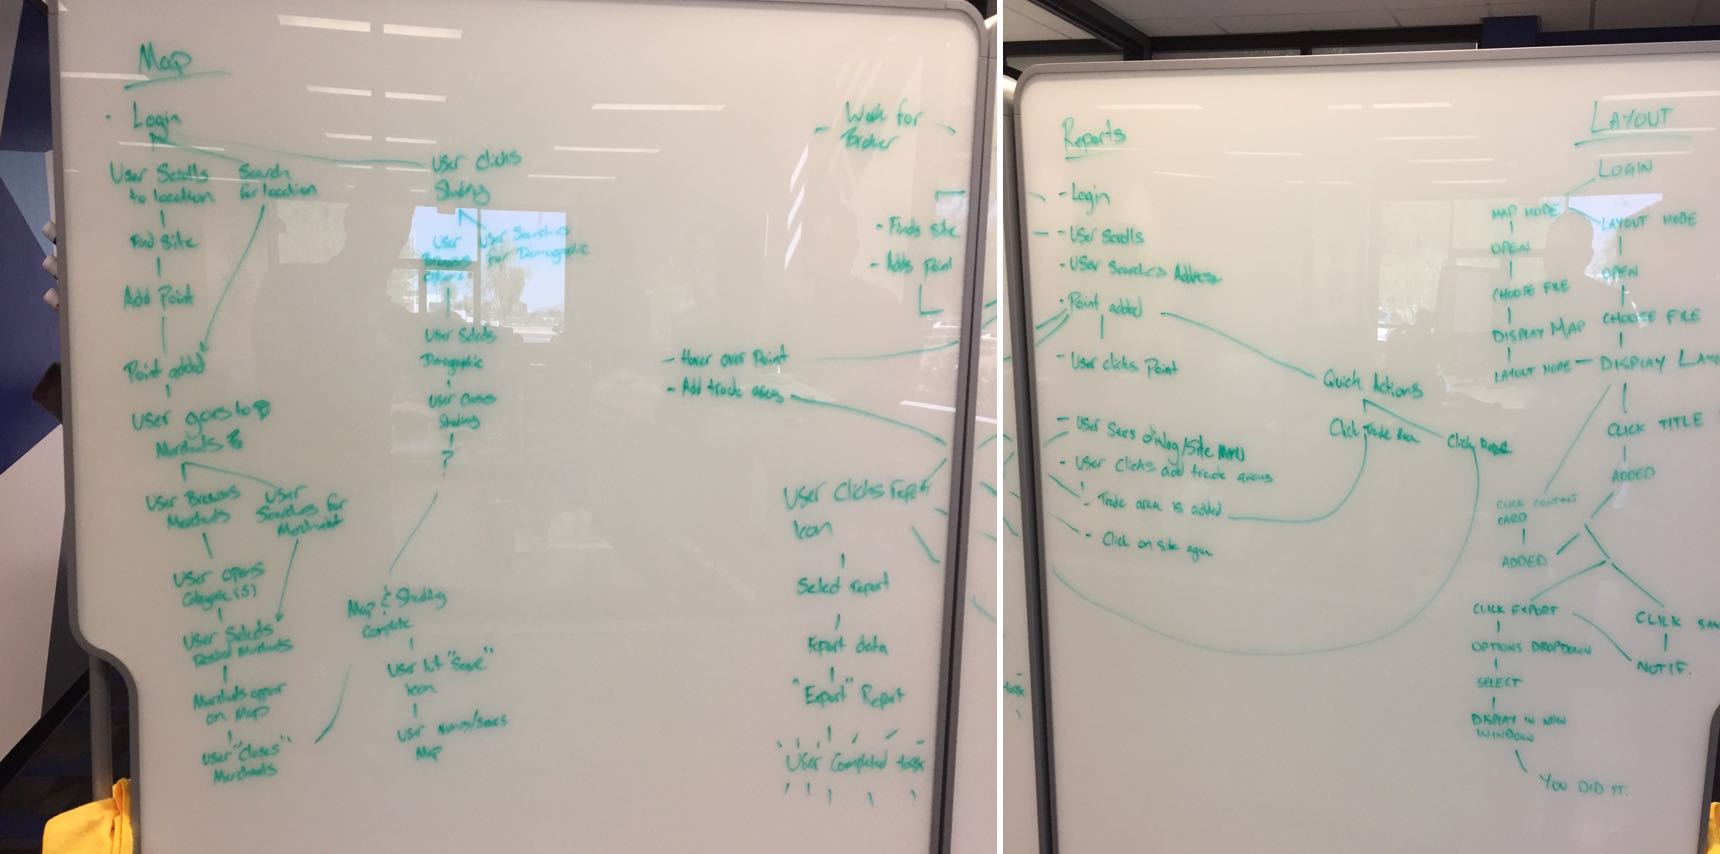 Map
- Login
User Scrolls
to location
Search
for location
Find Site
Add Point
Point added
User goes to
Merchants
User Browses
Merchants
User
Searches for
Merchant
User opens
Categorie(s)
User Selects
Desired Merchants
Merchants appear
on Map
User "Closes"
Merchants
User Clicks
Shading
User
Browses
User Searches
for Demographic
User Selects
Demographic
User Closes
Shading
?
Map & Shading
Complete
User hit "Save"
Icon
User Names/Saves
Map
- Work for
Broker
- Finds site
- Adds point
- Hover over Point
- Add trade areas
User Clicks Report
Icon
Select report
Report data
"Export" Report
User Completed task
Reports
- Login
- User scrolls
- User searches Address
- Point added
- User clicks Point
Quick Actions
Click Trade Area
Click Report
- User Sees dialog/Site Menu
- User Clicks add trade areas
- Trade area is added
- Click on site again
LAYOUT
LOGIN
MAP MODE
OPEN
CHOOSE FILE
DISPLAY MAP
LAYOUT MODE
LAYOUT MODE
OPEN
CHOOSE FILE
DISPLAY LAYO
CLICK TITLE
ADDED
CLICK CONTACT
CARD
ADDED
CLICK EXPORT
OPTIONS DROPDOWN
SELECT
DISPLAY IN NEW
WINDOW
YOU DID IT.
CLICK SAV
NOTIF.